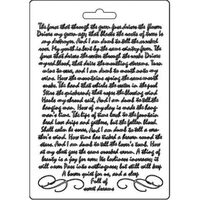 The force that through the green fuse drives the flower
Drives my green age; that blasts the roots of trees Is
my destroyer. And I am dumb to tell the crooked
rose. My youth is bent by the same wintry fever. The
force that drives the water through the rocks Drives
my red blood; that dries the mouthing streams Turns
mine to wax. And I am dumb to mouth unto my
veins How the mountain spring the same mouth
sucks. The hand that whirls the water in the pool
Stirs the quicksand; that ropes the blowing wind
Hauls my shroud sail. And I am dumb to tell the
hanging man. How of my clay is made the hang-
man's lime. The lips of time leech to the fountain
head Love drips and gathers, but the fallen blood.
Shall calm her sores, And I am dumb to tell a wea-
ther's wind. How time has ticked a heaven round the
stars. And I am dumb to tell the lover's tomb. How
at my sheet goes the same crooked worm. A thing of
beauty is a joy for ever: its loveliness increases; it
will never Pass into nothingness; but still will keep
A bower quiet for us, and a sleep
Full of
sweet dreams